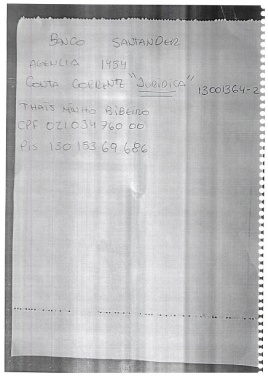 BANCO SANTANDER
AGENCIA 1454
CONTA CORRENTE "JURIDICA" 13001364-2
THAIS MAITO RIBEIRO
CPF 021 034 760 00
Pis 130 153 69 686